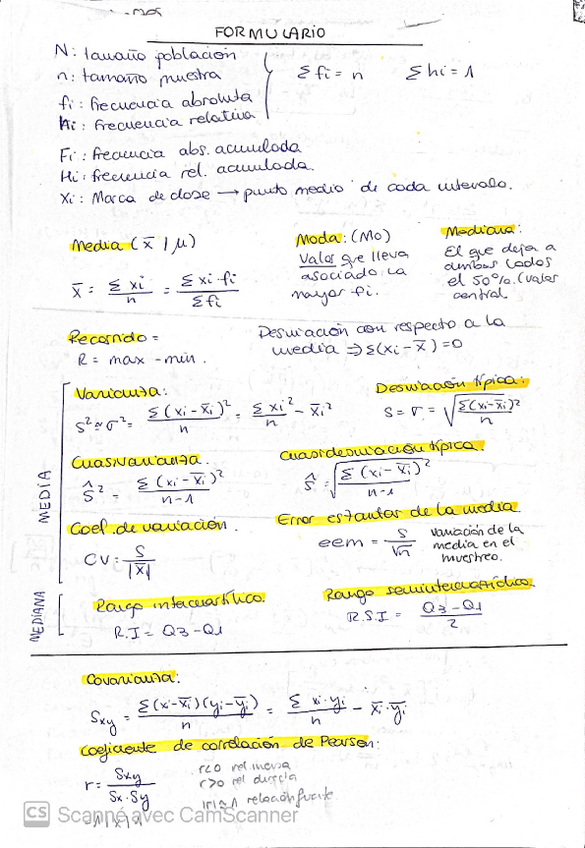 FORMULARIO
N: tamaño población
n: tamaño muestra
fi: frecuencia absoluta
hi: frecuencia relativa
Σ fi = n   Σ hi = 1
Fi: frecuencia abs. acumulada
Hi: frecuencia rel. acumulada.
Xi: Marca de clase → punto medio de cada intervalo.
Media (x̄ | μ)
x̄ = Σ xi / n = Σ xi · fi / Σ fi
Moda: (Mo)
Valor que lleva
asociado la
mayor fi.
Mediana:
El que deja a
ambos lados
el 50%. (valor
central
Recorrido =
R = max - min.
Desviación con respecto a la
media ⇒ Σ(xi - x̄) = 0
MEDIA
Varianza:
S² ≃ σ² = Σ (xi - x̄i)² / n = Σ xi² / n - x̄i²
Desviación típica:
S = σ = √(Σ(xi - x̄i)² / n)
Cuasivarianza.
Ŝ² = Σ (xi - x̄i)² / n-1
Cuasidesviación típica.
Ŝ = √(Σ (xi - x̄i)² / n-1)
Coef. de variación.
CV = S / |x̄|
Error estandar de la media.
eem = S / √n
variación de la
media en el
muestreo.
MEDIANA
Rango intercuartílico.
R.I = Q3 - Q1
Rango semiintercuartílico.
R.S.I = Q3 - Q1 / 2
Covarianza:
Sxy = Σ(xi - x̄i)(yi - ȳi) / n = Σ xi · yi / n - x̄i · ȳi
Coeficiente de correlación de Pearson:
r = Sxy / Sx · Sy
r<0 rel. inversa
r>0 rel directa
|r| ≃ 1 relación fuerte
CS Scanné avec CamScanner